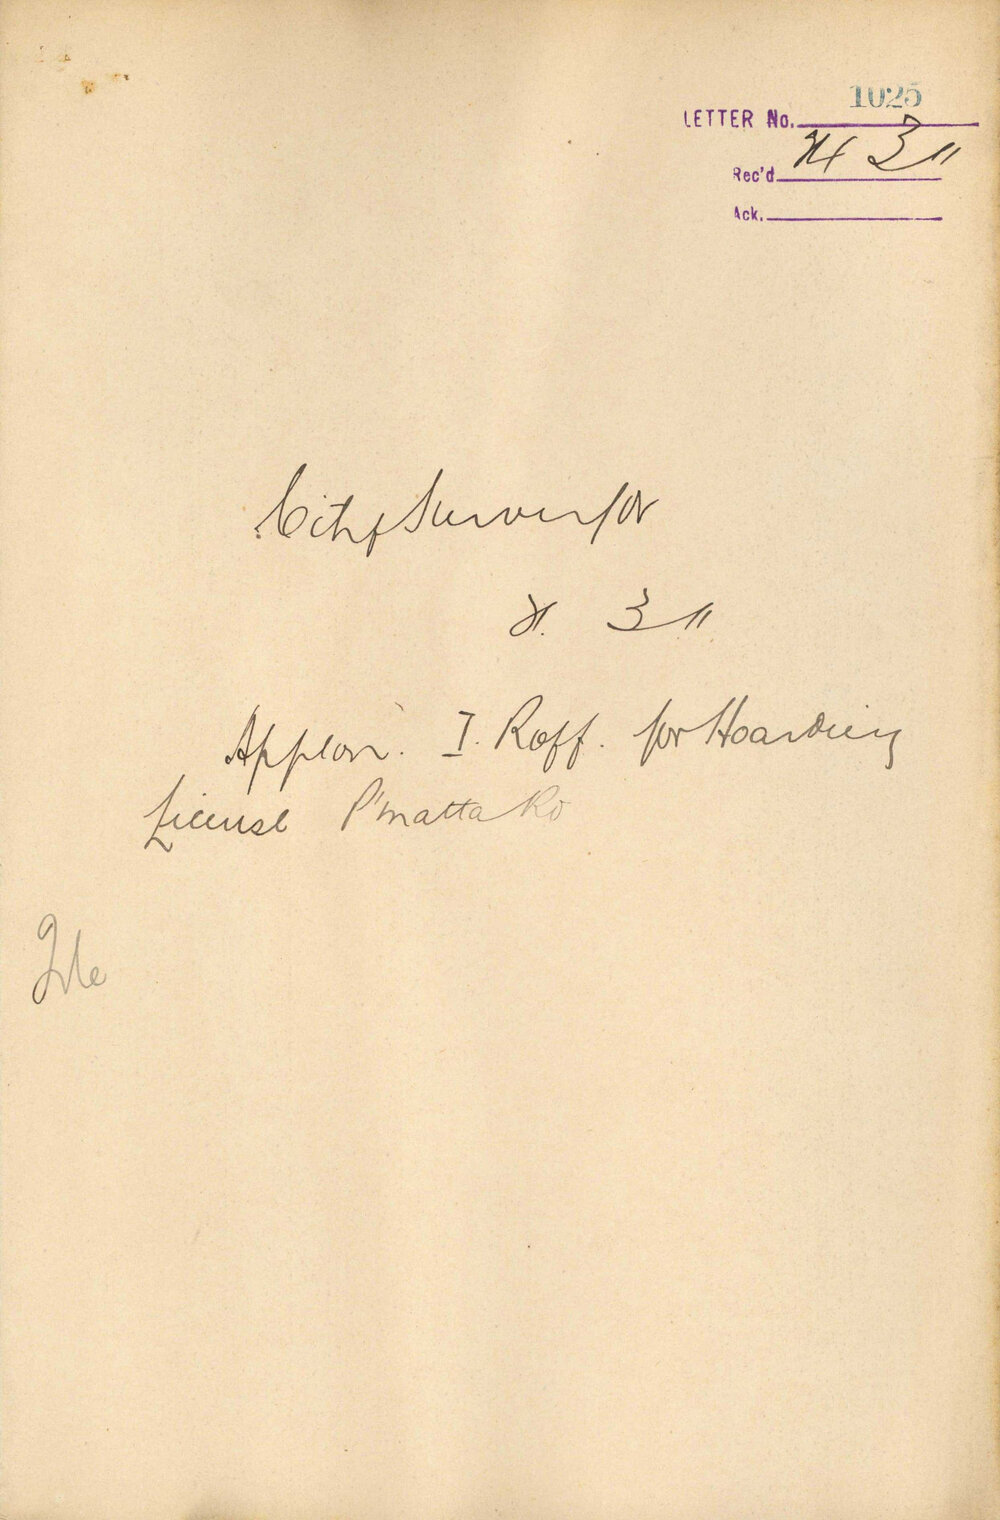 1025
LETTER No.
Rec'd 3 11
Ack.
City Surveyor
3 11
Applon. I. Roff. for Hoarding
License P'matta Rd
File